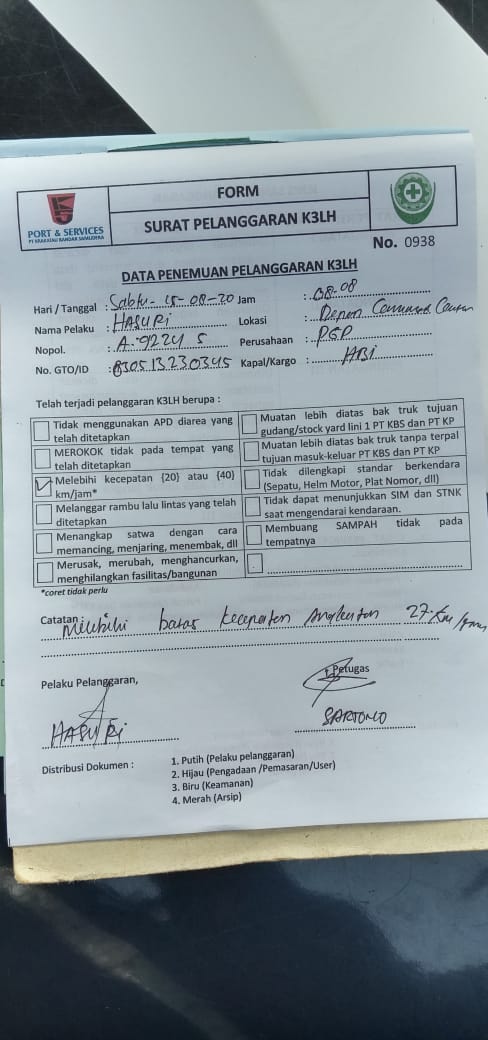 FORM
SURAT PELANGGARAN K3LH
PORT & SERVICES
PT KRAKATAU BANDAR SAMUDERA
No. 0938
DATA PENEMUAN PELANGGARAN K3LH
Hari / Tanggal : Sabtu - 15-08-20 Jam : 08.08
Nama Pelaku : HASURI Lokasi : Depan Command Center
Nopol. : A. 9224 S Perusahaan : PGP
No. GTO/ID : 830513230345 Kapal/Kargo : HBI
Telah terjadi pelanggaran K3LH berupa :
Tidak menggunakan APD diarea yang telah ditetapkan
Muatan lebih diatas bak truk tujuan gudang/stock yard lini 1 PT KBS dan PT KP
MEROKOK tidak pada tempat yang telah ditetapkan
Muatan lebih diatas bak truk tanpa terpal tujuan masuk-keluar PT KBS dan PT KP
Melebihi kecepatan {20} atau {40} km/jam*
Tidak dilengkapi standar berkendara (Sepatu, Helm Motor, Plat Nomor, dll)
Melanggar rambu lalu lintas yang telah ditetapkan
Tidak dapat menunjukkan SIM dan STNK saat mengendarai kendaraan.
Menangkap satwa dengan cara memancing, menjaring, menembak, dll
Membuang SAMPAH tidak pada tempatnya
Merusak, merubah, menghancurkan, menghilangkan fasilitas/bangunan
*coret tidak perlu
Catatan : batas kecepatan Angkutan 27 km/jam
Pelaku Pelanggaran,
Petugas
HASURI
SARTONO
Distribusi Dokumen :
1. Putih (Pelaku pelanggaran)
2. Hijau (Pengadaan /Pemasaran/User)
3. Biru (Keamanan)
4. Merah (Arsip)